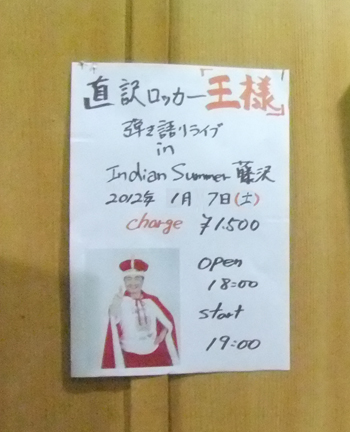 直訳ロッカー「王様」
弾き語りライブ
in
Indian Summer 藤沢
2012年 1月 7日(土)
charge ¥1.500
open
18:00
start
19:00